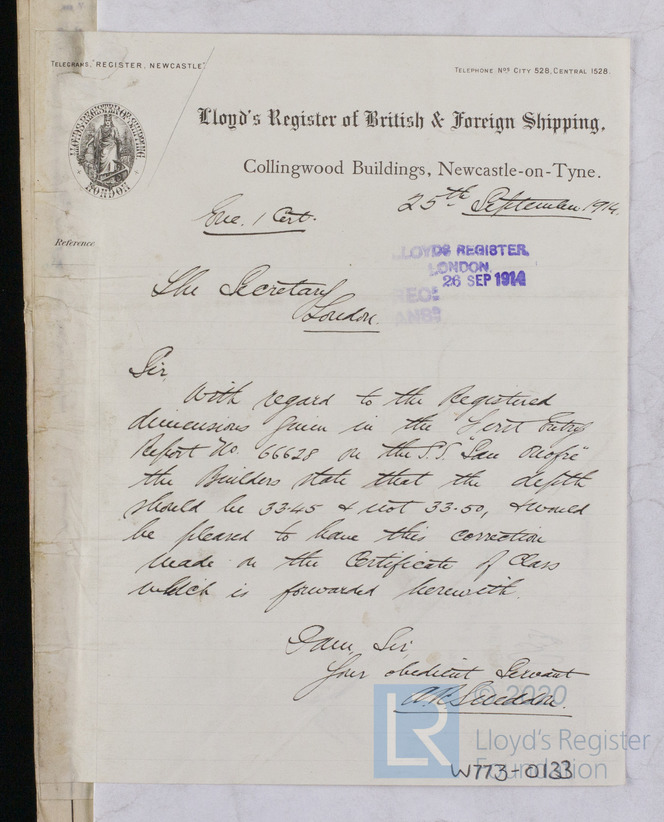 TELEGRAMS, "REGISTER, NEWCASTLE".
TELEPHONE Nos CITY 528, CENTRAL 1528.
LLOYD'S REGISTER OF SHIPPING
LONDON
Lloyd's Register of British & Foreign Shipping,
Collingwood Buildings, Newcastle-on-Tyne.
Enc. 1 Cert.
25th September 1914.
Reference
LLOYDS REGISTER,
LONDON.
26 SEP 1914
REC
ANSD
The Secretary
London.
Sir,
With regard to the Registered
dimensions given in the First Entry
Report No. 66628 on the S.S. "San Onofre"
the Builders state that the depth
should be 33.45 & not 33.50, & would
be pleased to have this correction
made on the Certificate of Class
which is forwarded herewith.
I am, Sir,
Your obedient Servant
© 2020
LR
Lloyd's Register
Foundation
W773-0133